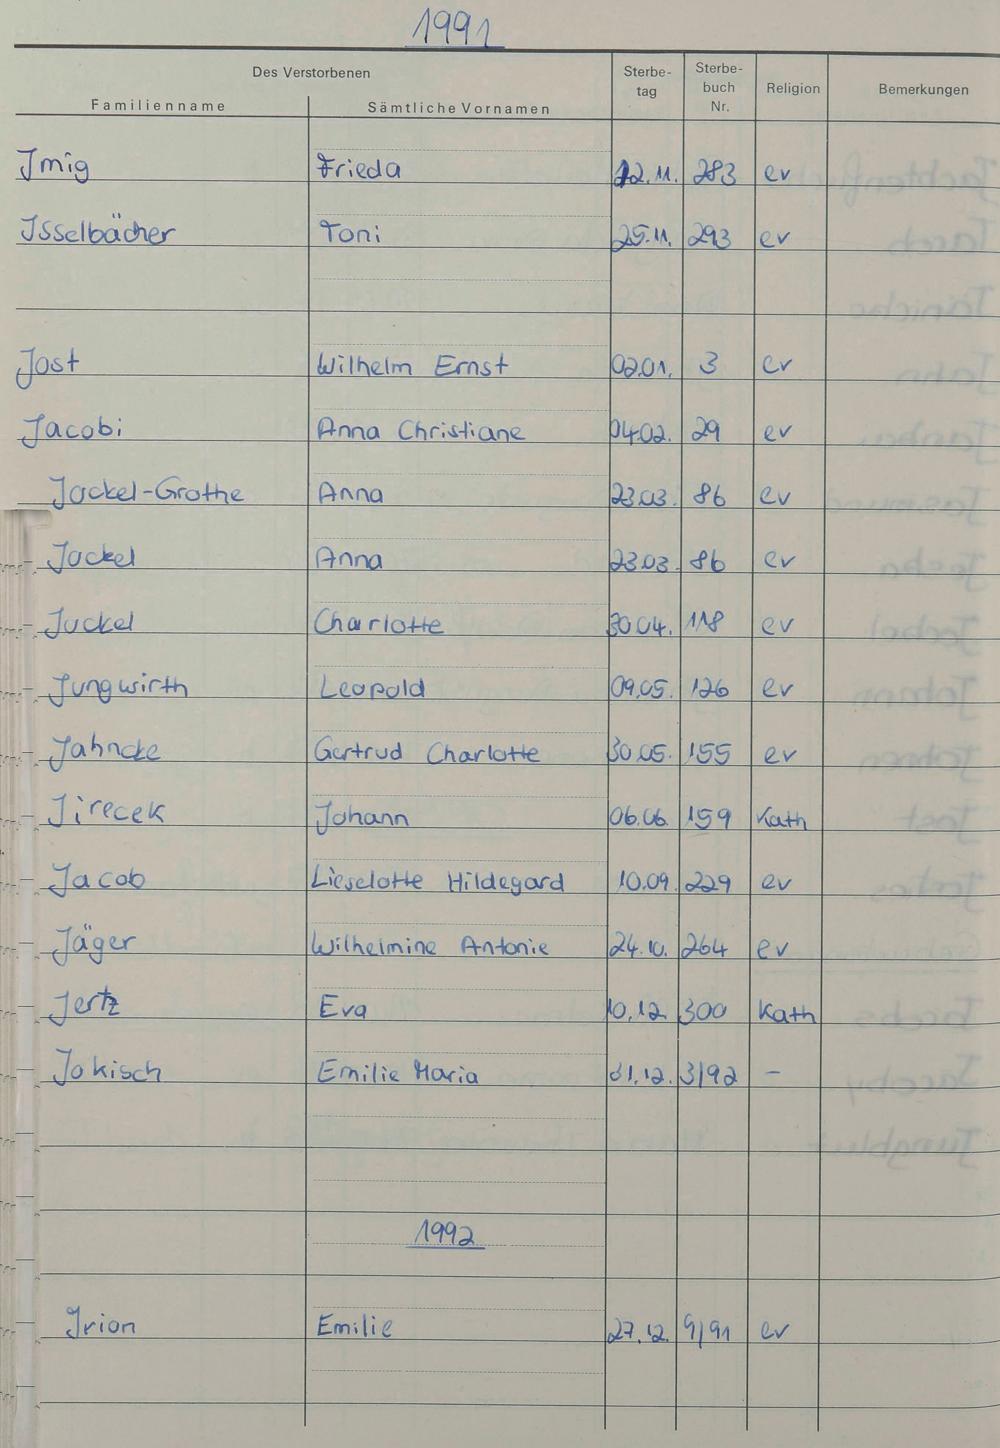 1991
Des Verstorbenen
Familienname Sämtliche Vornamen Sterbe-tag Sterbe-buch Nr. Religion Bemerkungen
Jmig Frieda 12.11. 283 ev
Jsselbächer Toni 25.11. 293 ev
Jost Wilhelm Ernst 02.01. 3 ev
Jacobi Anna Christiane 04.02. 29 ev
Jackel-Grothe Anna 23.03. 86 ev
Jackel Anna 23.03. 86 ev
Juckel Charlotte 30.04. 118 ev
Jungwirth Leopold 09.05. 126 ev
Jahncke Gertrud Charlotte 30.05. 155 ev
Jirecek Johann 06.06. 159 Kath
Jacob Lieselotte Hildegard 10.09. 229 ev
Jäger Wilhelmine Antonie 24.10. 264 ev
Jertz Eva 10.12. 300 Kath
Jokisch Emilie Maria 31.12. 3/92 -
1992
Jrion Emilie 27.12. 9/91 ev